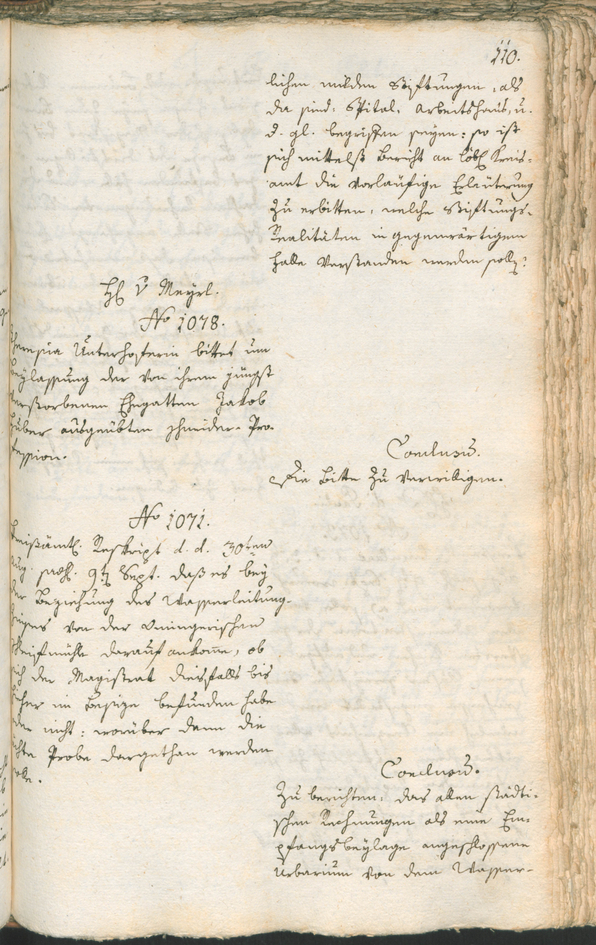 110.
lichen milden Stiftungen, als
da sind: Spital, Arbeitshaus, u.
d. gl. begriffen seyen: so ist
sich mittelst Bericht an löbl. Kreis-
amt die vorläufige Erleuterung
zu erbitten, welche Stiftungs-
Realitäten in gegenwärtigem
Falle verstanden werden solln?
H. v Meyrl.
No 1078.
Theresia Unterhoferin bittet um
Beylassung der von ihrem jüngst
verstorbenen Ehegatten Jakob
Huber ausgeübten Schneider-Pro-
fession.
Conclusum.
Die Bitte zu verwilligen.
No 1071.
Kreisämtl. Reskript d. d. 30ten
Aug. praes. 9ten Sept. daß es bey
der Beziehung des Wasserleitung-
zinses von der
Schleifmühle darauf ankomme, ob
sich der Magistrat diesfalls bis
hieher im Besize befunden habe
oder nicht: worüber dann die
ächte Probe dargethan werden
solle.
Conclusum.
Zu berichten, das allen städti-
schen Rechnungen als eine Em-
pfangsbeylage angeschlossene
Urbarium von dem Wasser-